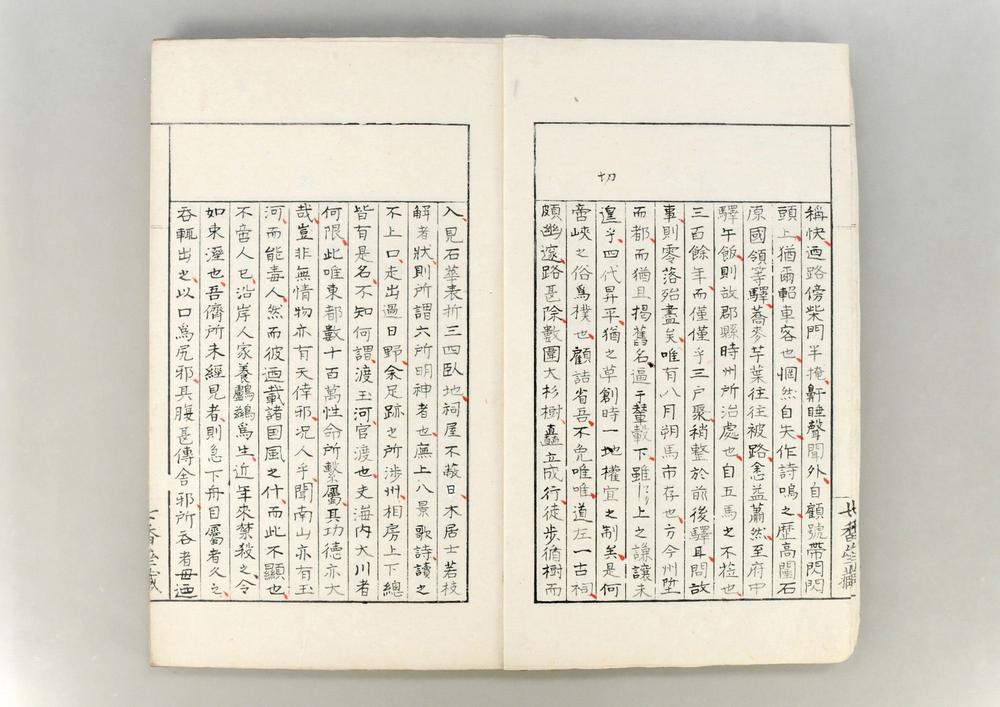 稱快迺路傍柴門半掩鼾睡聲聞外自顧號帶閃閃
頭上猶爾軺車客也惘然自失作詩嗚之歷高閣石
原國領等驛蕎麥芋葉往往被路悆益蕭然至府中
驛午飯則故郡縣時州所治處也自五馬之不莅也
三百餘年而僅僅乎三戶聚稍整於前後驛耳問故
事則零落殆盡矣唯有八月朔馬市存也方今州堕
而都而猶且揭舊名逼于輦轂下雖上之謙讓未
遑乎四代昇平猶之草創時一地權宜之制矣是何
啻峽之俗為樸也顧詰省吾不免唯唯道左一古祠
頗幽邃路甚除數圍大杉樹矗立成行徒步循樹而
切
入見石華表折三四臥地祠屋不蔽日木居士若校
解者狀則所謂六所明神者也廡上八景歌詩讀之
不上口走出過日野余足跡之所涉州相房上下總
皆有是名不知何謂渡玉河官渡也夫海內大川者
何限此唯東都數十百萬性命所繫屬其功德亦大
哉豈非無情物亦有天倖邪況人乎聞南山亦有玉
河而能毒人然而彼迺載諸国風之什而此不顯也
不啻人已沿岸人家養鸕鶿為生近年來禁殺之令
如束溼也吾儕所未經見者則急下舟目屬者久之
吞輒出之以口為尻邪其腹甚傳舍邪所吞者毋迺